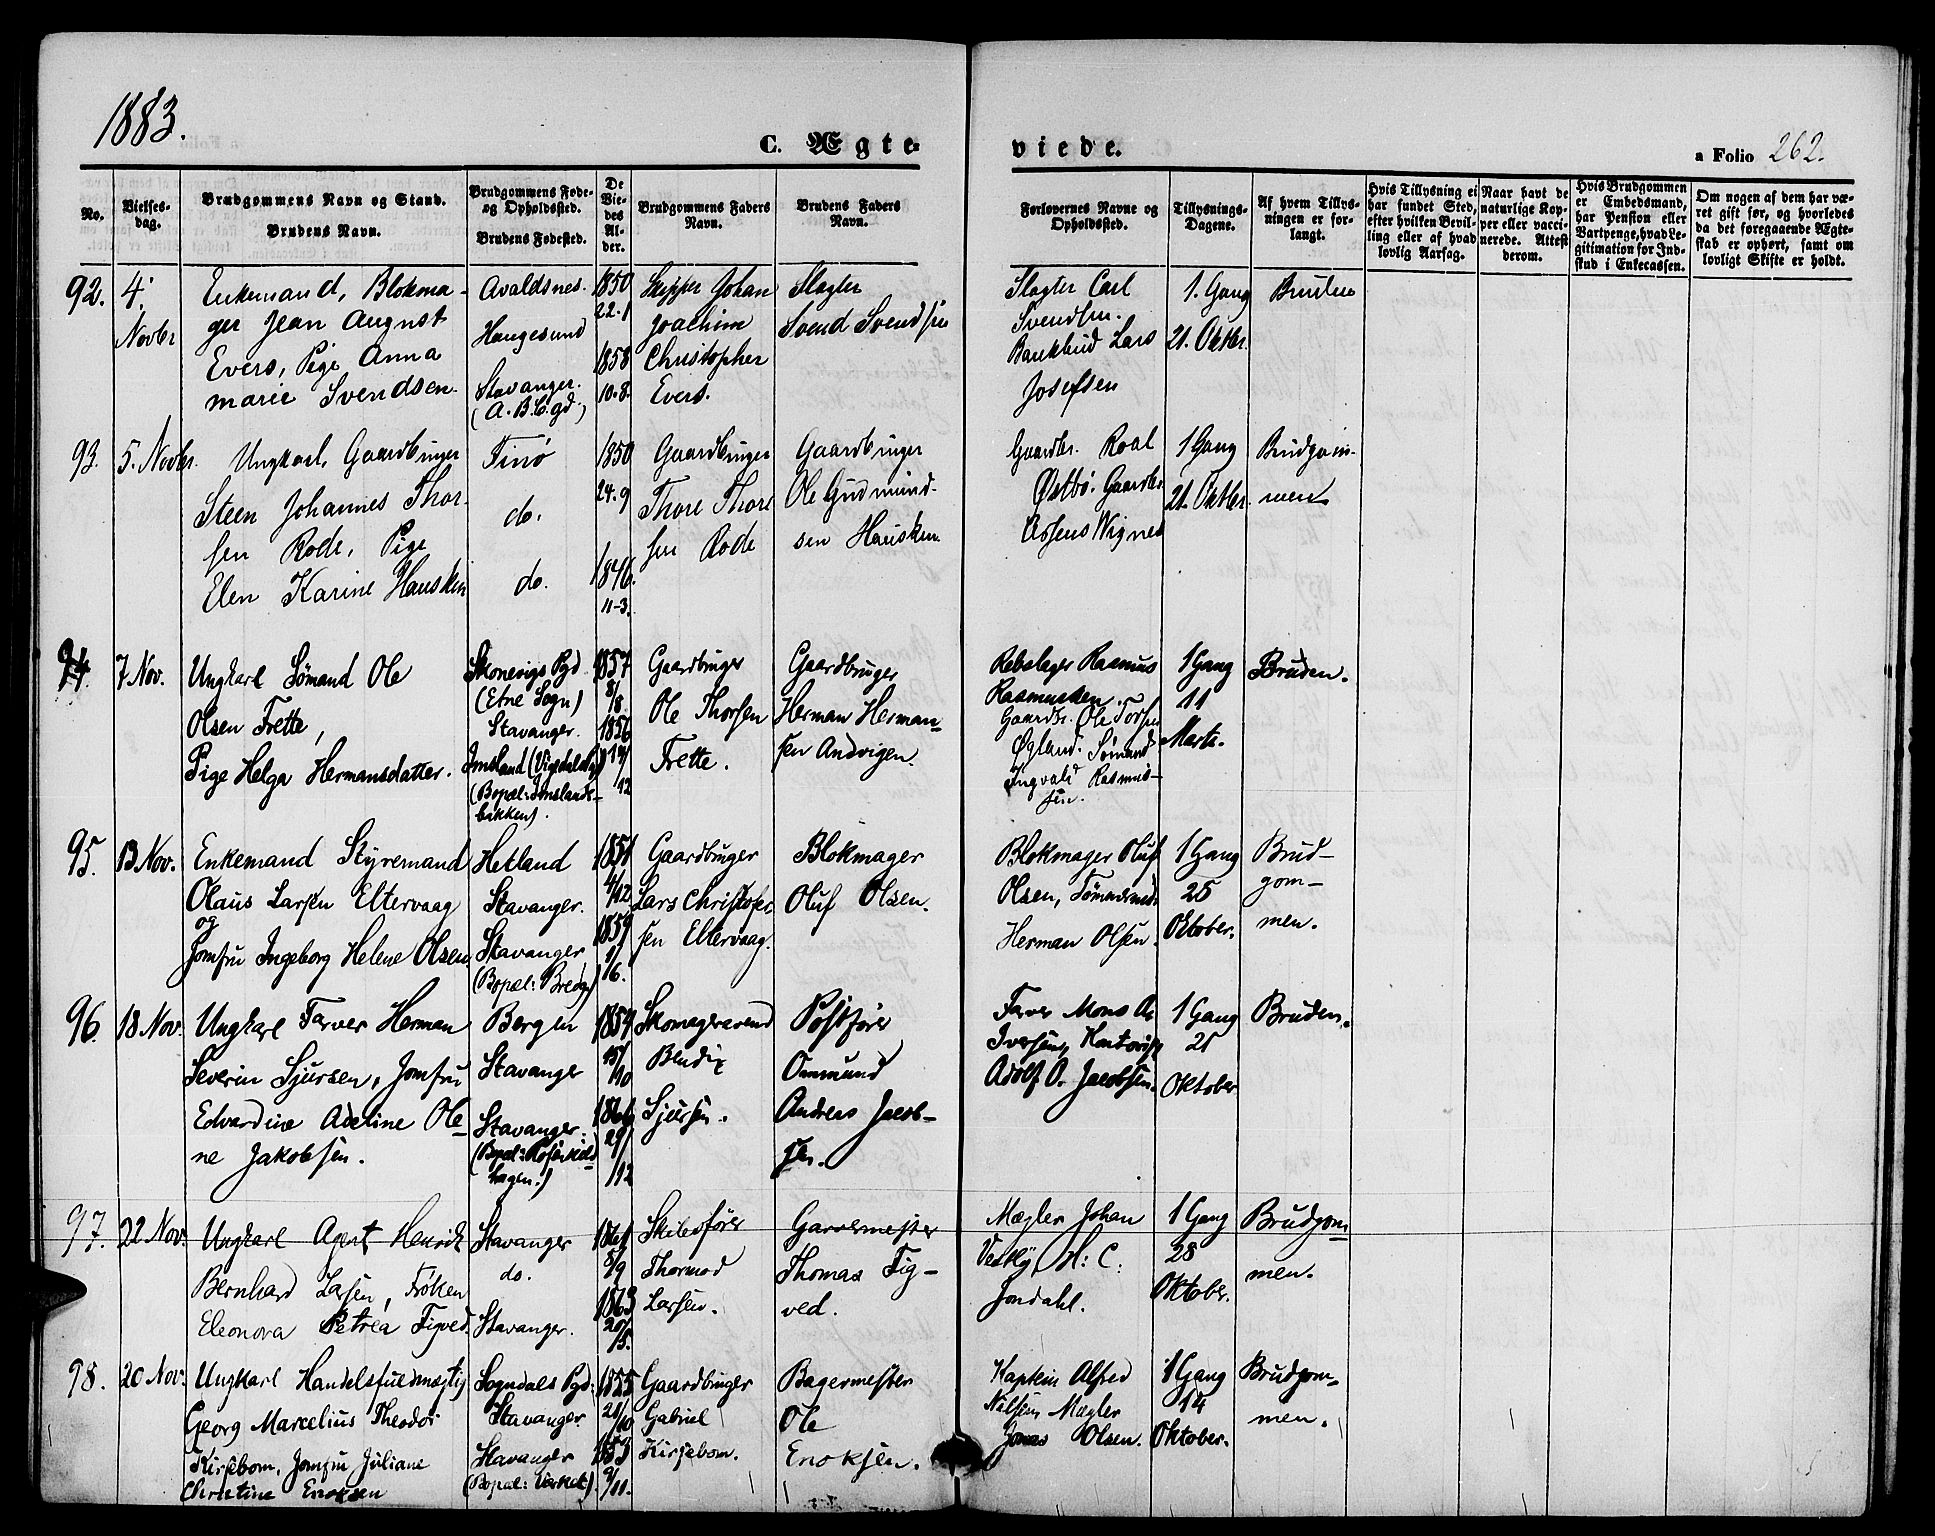 1883.
C. Ægte-
viede.
a Folio 262.
No.
Vielses-
dag.
Brudgommens Navn og Stand.
Brudens Navn.
Brudgommens Føde-
og Opholdssted.
Brudens Fødested.
De
Vie-
des
Al-
der.
Brudgommens Faders
Navn.
Brudens Faders
Navn.
Forlovernes Navne og
Opholdssted.
Tillysnings-
Dagene.
Af hvem Tillys-
ningen er for-
langt.
Hvis Tillysning ei
har fundet Sted,
efter hvilken Bevil-
ling eller af hvad
lovlig Aarsag.
Naar havt de
naturlige Kop-
per eller vacci-
nerede. Attest
derom.
Hvis Brudgommen
er Embedsmand,
har Pension eller
Vartpenge, hvad Le-
gitimation for Ind-
skud i Enkecassen.
Om nogen af dem har væ-
ret gift før, og hvorledes
da det foregaaende Ægte-
skab er ophørt, samt om
lovligt Skifte er holdt.
92.
4.
Novbr
Enkemand, Blokma-
ger Jean August
Evers, Pige Anna
marie Svendsen.
Avaldsnes.
Haugesund
Stavanger.
(A.B.C.gd)
1850
22.1
1858
10.8.
Skipper Johan
Joachim
Christopher
Evers.
Slagter
Svend Svendsen
Slagter Carl
Svendsen.
Bankbud Lars
Josefsen
1. Gang
21. Oktbr.
Bruden
93.
5. Novbr.
Ungkarl, Gaardbruger
Steen Johannes Thor-
sen Rode, Pige
Elen Karine Hausken
Finø
do.
do.
1850
24.9
1846.
11-3.
Gaardbruger
Thore Thore
sen Rode
Gaardbruger
Ole Gudmund-
sen Hausken
Gaardbr. Roal
Østbø. Gaardbr
Wignes
1 Gang
21. Oktbr.
Brudgom-
men
94.
7 Nov.
Ungkarl Sømand Ole
Olsen Frette,
Pige Helga Hermansdatter.
Skonevigs Pgd
(Etne Sogn)
Stavanger.
Imsland (
(Bopæl: Imslands-
bakken).
1857
8/8.
1856
19/
12
Gaardbruger
Ole Thorsen
Frette.
Gaardbruger
Herman Herman-
sen Andvigen.
Rebslager Rasmus
Rasmussen.
Gaardbr. Ole Torsen
Øgland. Sømand
Ingvald Rasmus-
sen.
1 Gang
11
Marts.
Bruden.
95.
13 Nov.
Enkemand Styremand
Olaus Larsen Eltervaag
og
Jomfru Ingeborg Helene Olsen.
Hetland
Stavanger.
Stavanger
(Bopæl: Bredg.)
1851
4/12
1859
1/
16.
Gaardbruger
Lars Christofer
sen Eltervaag.
Blokmager
Oluf Olsen.
Blokmager Oluf
Olsen, Tømmermd.
Herman Olsen.
1 Gang
25
Oktober.
Brud-
gom-
men.
96.
18 Nov.
Ungkarl Farver Herman
Severin Sjursen, Jomfru
Edvardine Adeline Ole-
ne Jakobsen.
Bergen
Stavanger
Stavanger.
(Bopæl: Rosenkild-
hagen.)
1859
15/
10
29/
12
Skomagersvend
Bendix
Sjursen.
Postfører
Ommund
Andreas Jacob-
sen.
Farver Mons A.
Iversen, Kontorist
Adolf O. Jacobsen.
1 Gang
21
Oktober
Bruden.
97.
22 Nov.
Ungkarl Agent Henrik
Bernhard Larsen, Frøken
Eleonora Petrea Figved.
Stavanger
do.
Stavanger.
1861
8/9
1863
20/
5.
Skibsfører
Thormod
Larsen.
Garvermester
Thomas Fig-
ved.
Mægler Johan
H: C:
Jondahl.
1 Gang
28
Oktober.
Brudgom-
men.
98.
20 Nov.
Ungkarl Handelsfuldmægtig
Georg Marcelius Theodor
Kirsebom, Jomfru Juliane
Christine Enoksen
Sogndals Pgd:
Stavanger.
Stavanger
(Bopæl: Verket).
1855
21/
10
1853
9/
11.
Gaardbruger
Gabriel
Kirsebom.
Bagermester
Ole
Enoksen.
Kaptein Alfred
Nilsen Mægler
Jonas Olsen.
1 Gang
14
Oktober.
Brudgom-
men.